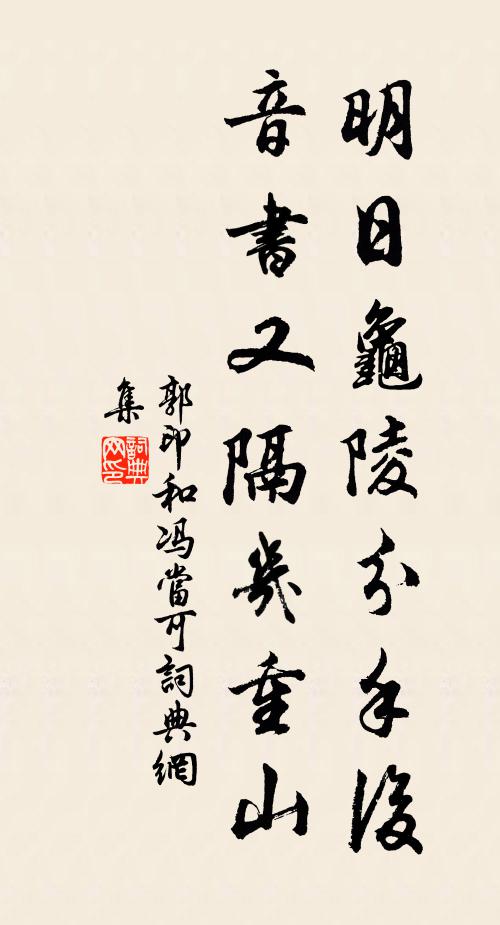 明日龜陵分手後
音書又隔幾重山
郭印和馮當可詞典網
集
詞典网印